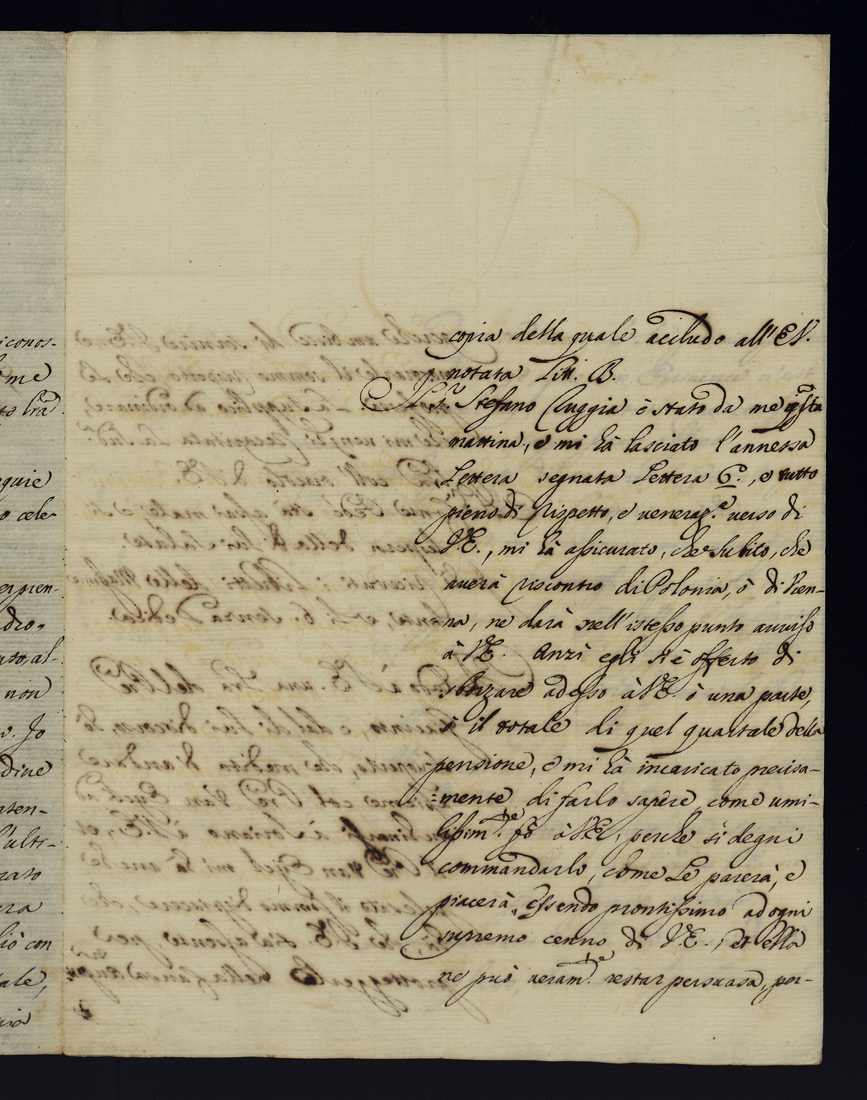 iconos-
me
quie
o cele-
non
dine
rato
era
liò con
ale,
copia della quale accludo all' E.V.
notata Litt. B.
Il Sig.r Stefano Cluggia è stato da me q.sta
mattina, e mi hà lasciato l'annessa
Lettera segnata Lettera C.a, e tutto
pieno di rispetto, e veneraz.e verso di
V.E., mi hà assicurato, che subito, che
averà riscontro di Polonia, ò di Vien-
na, ne darà nell'istesso punto avviso
à V.E. Anzi egli si è offerto di
sborzare adesso à V.E. ò una parte,
ò il totale di quel quartale della
pensione, e mi hà incaricato precisa-
mente di farlo sapere, come umi-
lissim.te fò à V.E., perche si degni
commandarlo, come Le parerà, e
piacerà, essendo prontissimo ad ogni
supremo cenno di V.E., et ella
ne può veram.te restar persuasa, per-